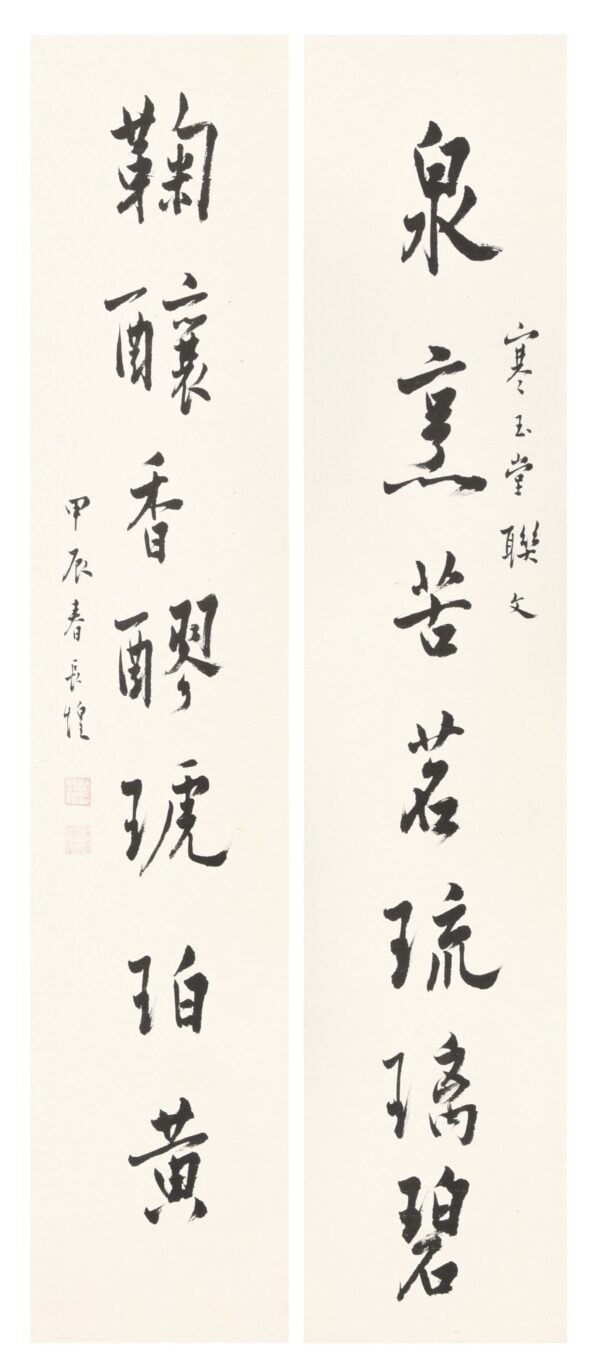 寒玉堂聯文
泉烹苦茗琉璃碧
鞠釀香醪琥珀黃
甲辰春長煌